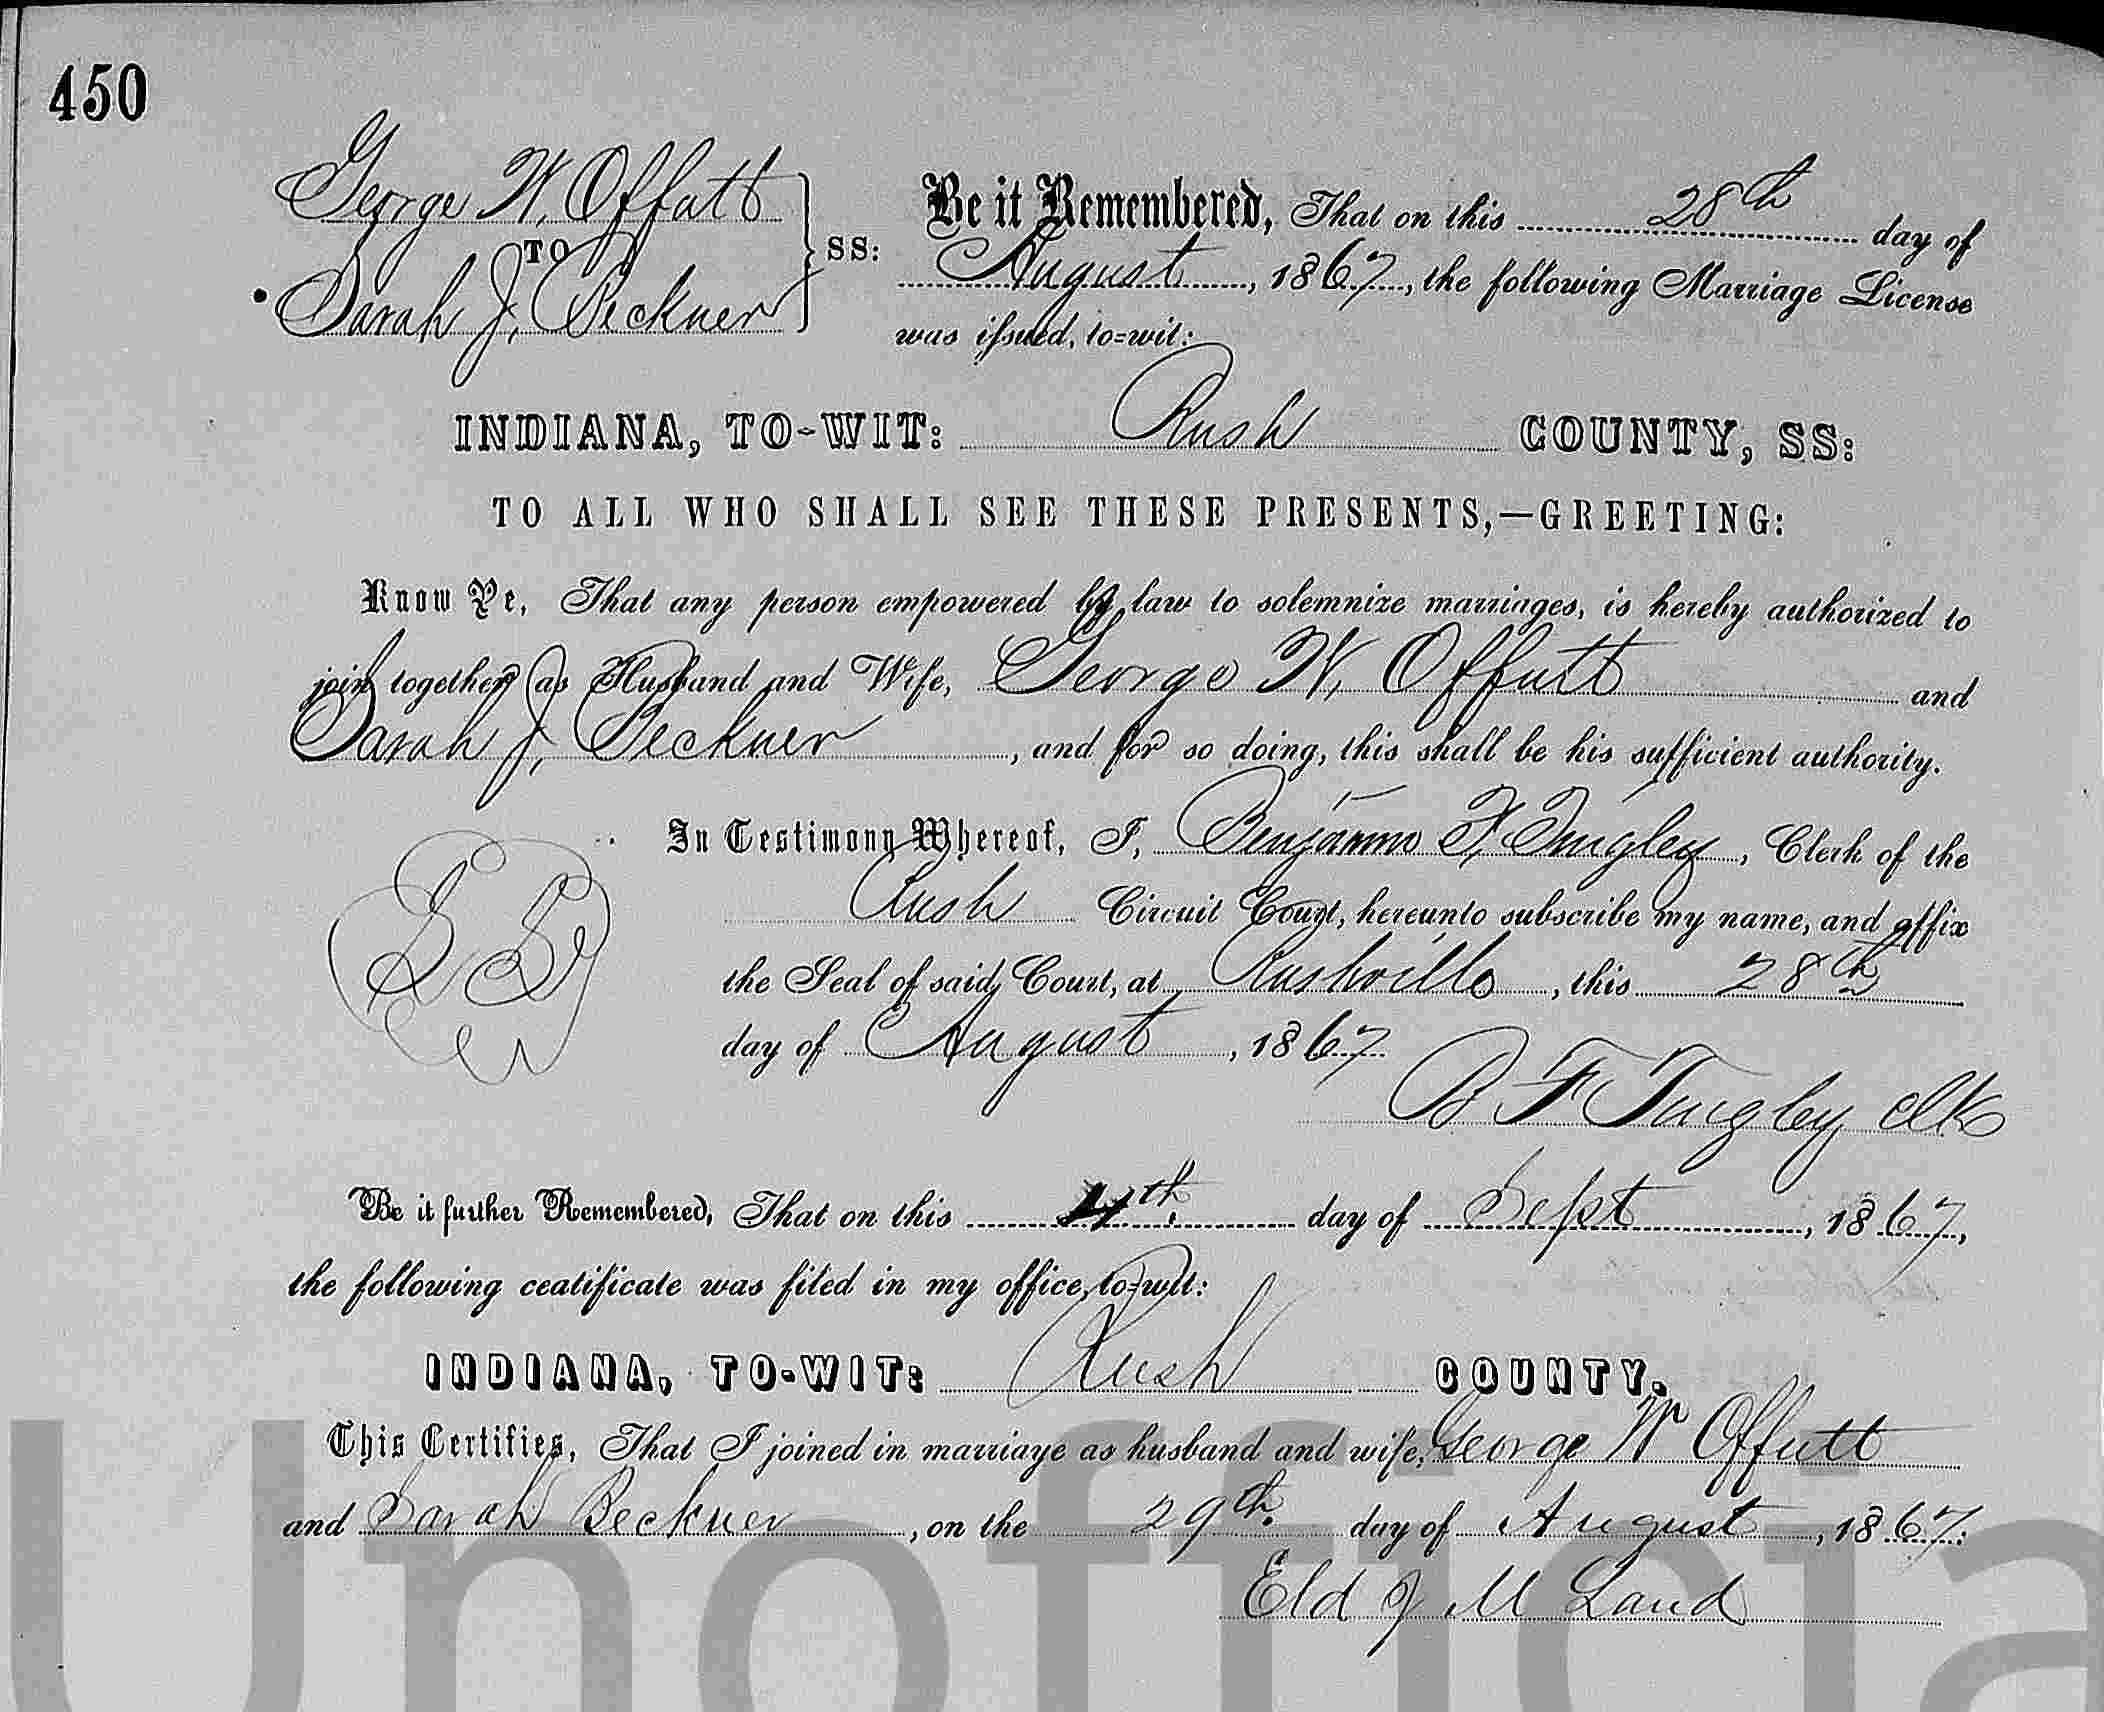 450
George W. Offutt
TO
Sarah J. Beckner
SS:
Be it Remembered, That on this 28th day of
August, 1867, the following Marriage License
was issued, to-wit:
INDIANA, TO-WIT: Rush COUNTY, SS:
TO ALL WHO SHALL SEE THESE PRESENTS,—GREETING:
Know Ye, That any person empowered by law to solemnize marriages, is hereby authorized to
join together as Husband and Wife, George W. Offutt and
Sarah J. Beckner, and for so doing, this shall be his sufficient authority.
In Testimony Whereof, I, Benjamin F. Tingley, Clerk of the
Rush Circuit Court, hereunto subscribe my name, and affix
the Seal of said Court, at Rushville, this 28th
day of August, 1867
B F Tingley Clk
Be it further Remembered, That on this 4th. day of Sept, 1867,
the following certificate was filed in my office, to-wit:
INDIANA, TO-WIT: Rush COUNTY.
This Certifies, That I joined in marriage as husband and wife, George W Offutt
and Sarah Beckner, on the 29th. day of August, 1867.
Eld J M Land
Unofficia